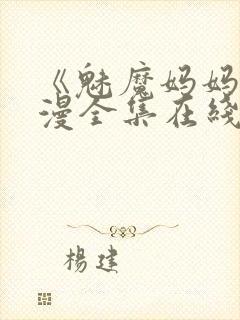 《魅魔妈妈
漫全集在线
杨建